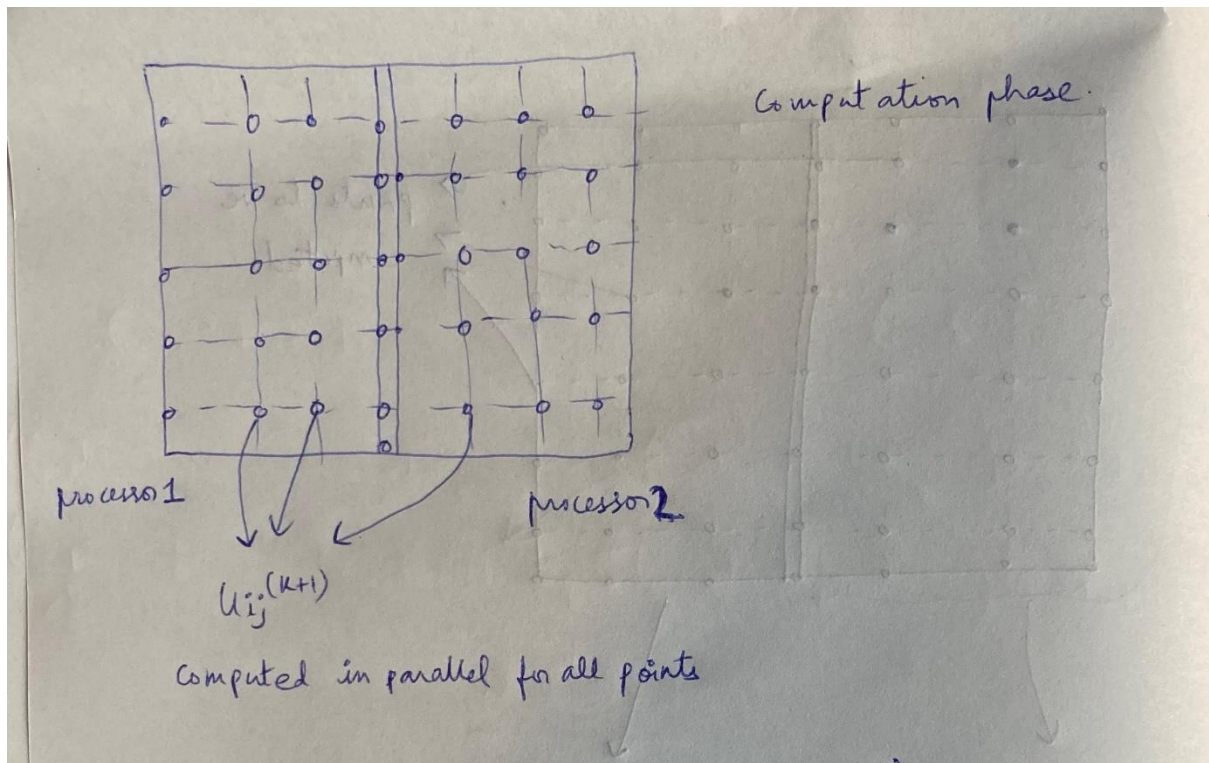 Computation phase.
processor 1
processor 2
uij^(k+1)
Computed in parallel for all points